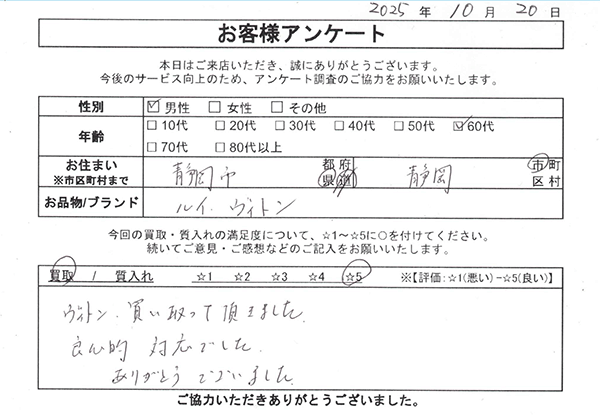 2025 年 10 月 20 日
お客様アンケート
本日はご来店いただき、誠にありがとうございます。
今後のサービス向上のため、アンケート調査のご協力をお願いいたします。
性別 ☑男性 □女性 □その他
年齢 □10代 □20代 □30代 □40代 □50代 ☑60代
□70代 □80代以上
お住まい ※市区町村まで 静岡市 都府県道 静岡 市町区村
お品物/ブランド ルイ・ヴィトン
今回の買取・質入れの満足度について、☆1~☆5に○を付けてください。
続いてご意見・ご感想などのご記入をお願いいたします。
買取 / 質入れ ☆1 ☆2 ☆3 ☆4 ☆5 ※【評価:☆1(悪い)−☆5(良い)】
ヴィトン、買い取って頂きました。
良心的 対応でした。
ありがとうございました
ご協力いただきありがとうございました。